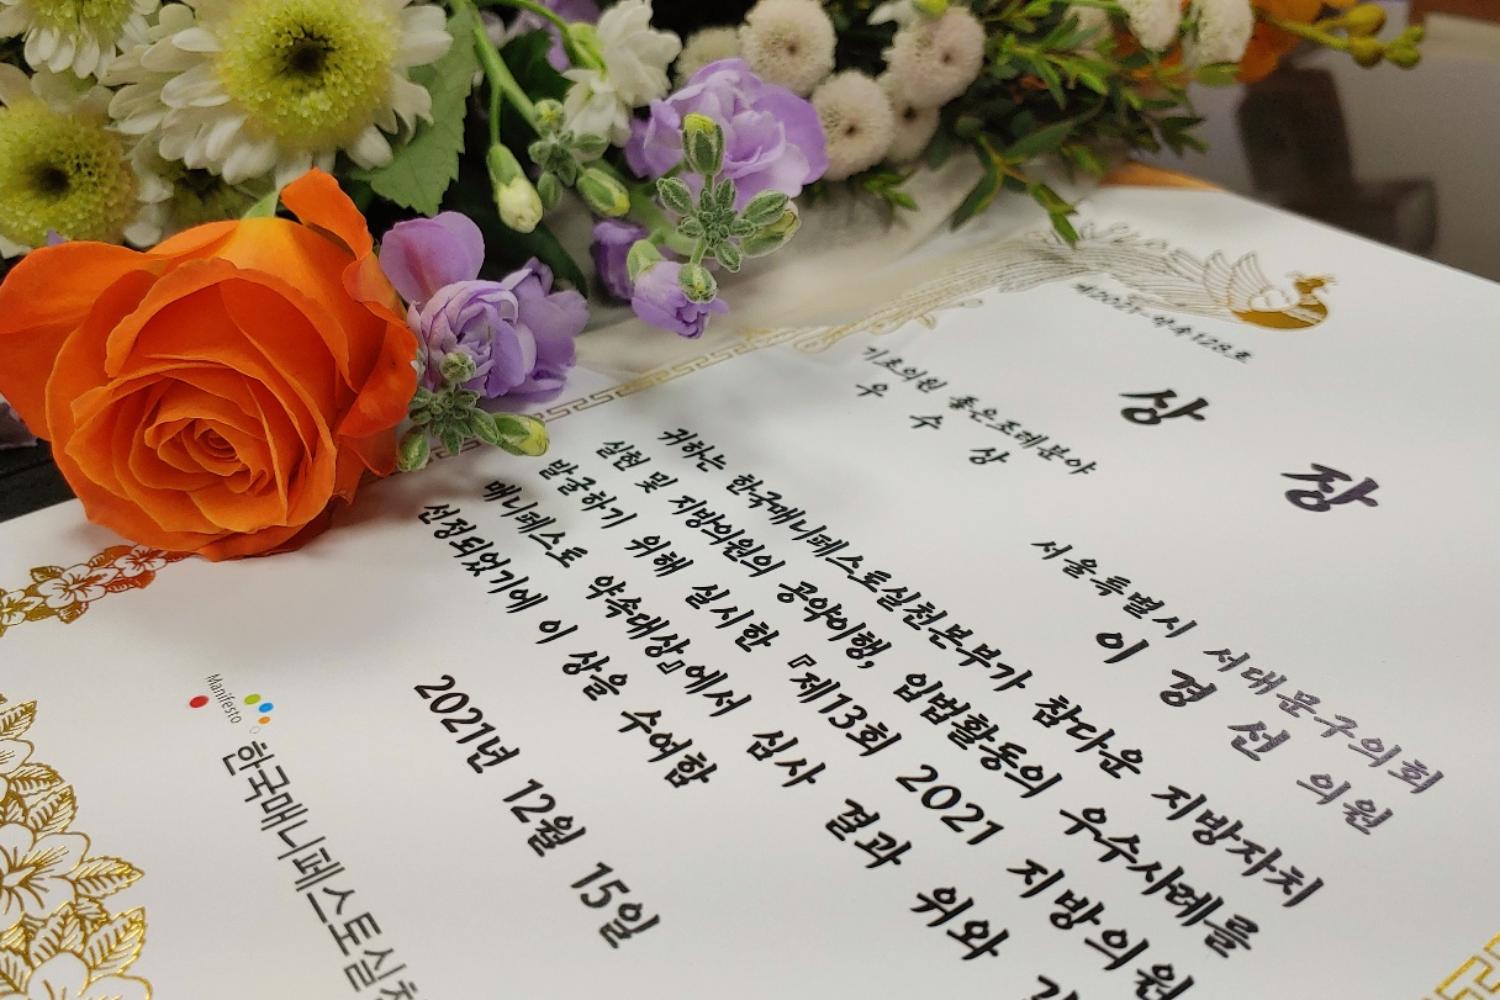 제2021-약속129호
상 장
기초의원 좋은조례분야
우 수 상
서울특별시 서대문구의회
이 경 선 의원
귀하는 한국매니페스토실천본부가 참다운 지방자치
실현 및 지방의원의 공약이행, 입법활동의 우수사례를
발굴하기 위해 실시한 『제13회 2021 지방의원
매니페스토 약속대상』에서 심사 결과 위와
선정되었기에 이 상을 수여함
2021년 12월 15일
Manifesto 한국매니페스토실